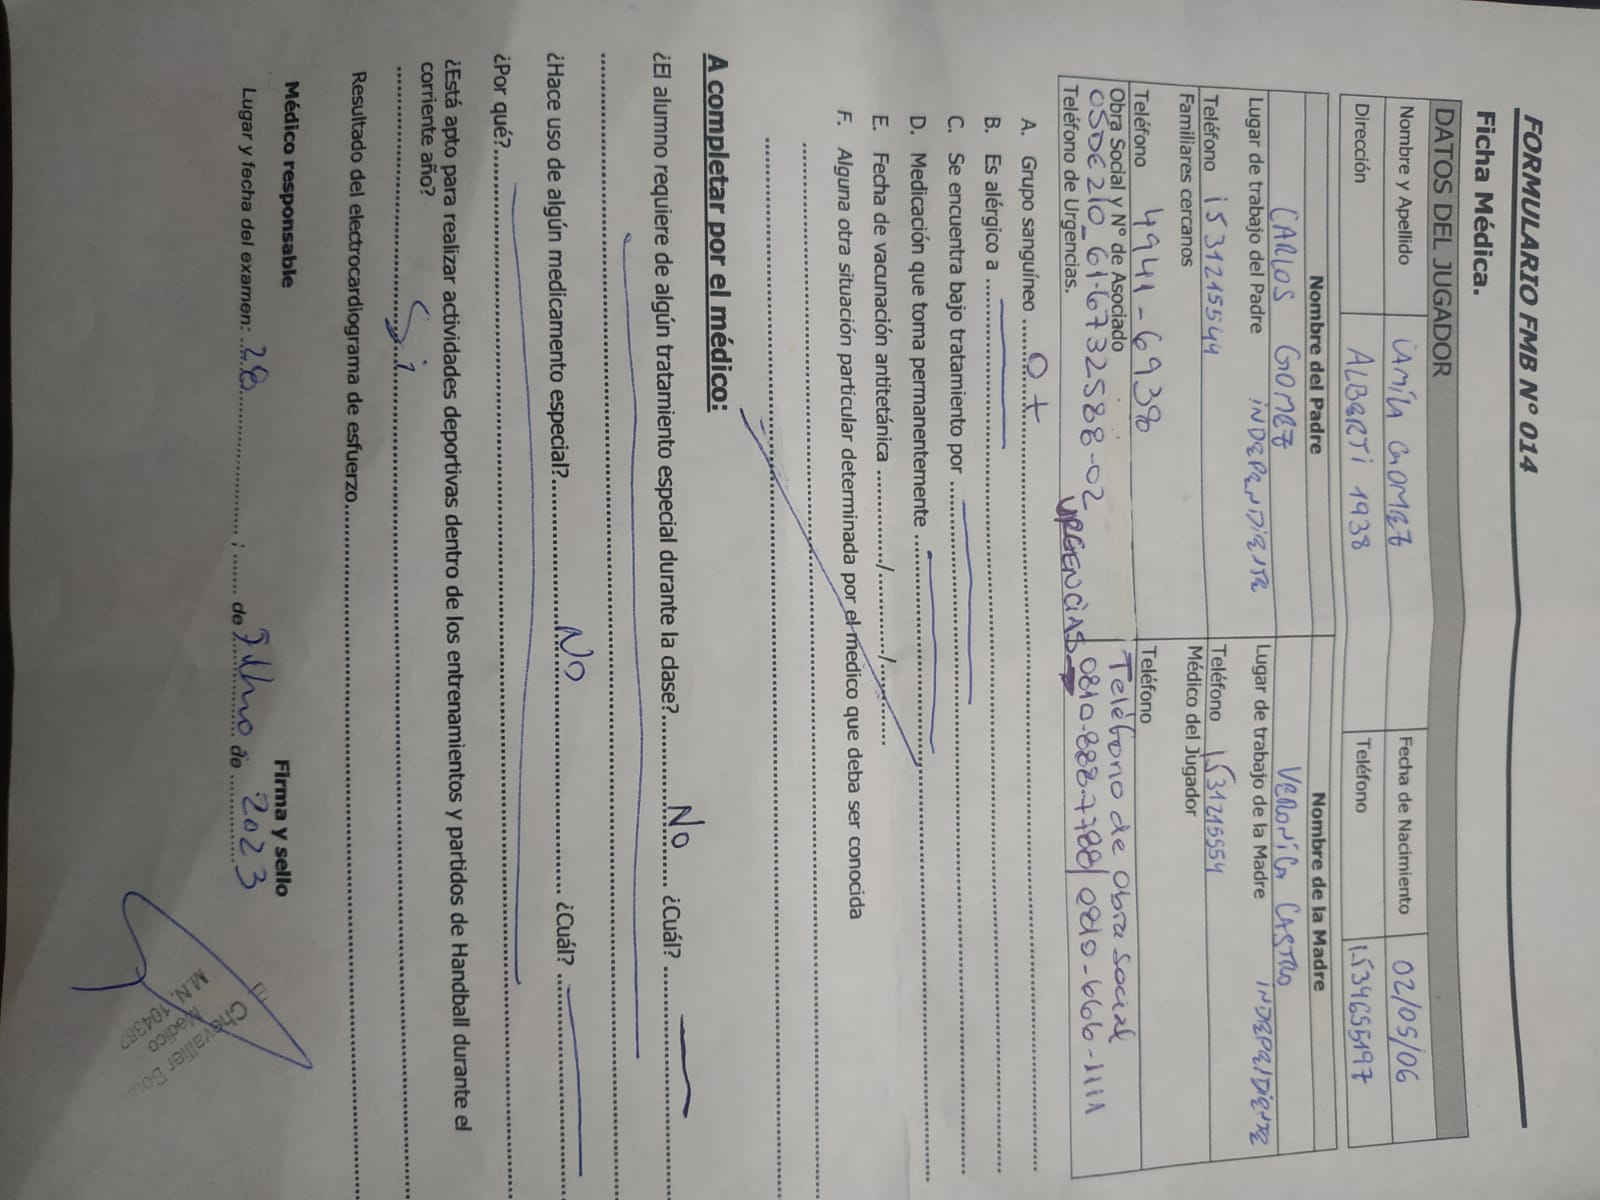 FORMULARIO FMB Nº 014
Ficha Médica.
DATOS DEL JUGADOR
Nombre y Apellido CAMILA GOMEZ Fecha de Nacimiento 02/05/06
Dirección ALBERTI 1938 Teléfono 1534655197
Nombre del Padre Nombre de la Madre
CARLOS GOMEZ VERONICA CASTRO
Lugar de trabajo del Padre INDEPENDIENTE Lugar de trabajo de la Madre INDEPENDIENTE
Teléfono 1531215544 Teléfono 1531215554
Familiares cercanos Médico del Jugador
Teléfono 4941-6938 Teléfono
Obra Social y Nº de Asociado Teléfono de obra social
OSDE 210_61673258802
Teléfono de Urgencias. URGENCIAS→ 0810-888-7788/0810-666-1111
A. Grupo sanguíneo ........ O +
B. Es alérgico a ........
C. Se encuentra bajo tratamiento por ........
D. Medicación que toma permanentemente ........
E. Fecha de vacunación antitetánica ............/............/............
F. Alguna otra situación particular determinada por el medico que deba ser conocida
A completar por el médico:
¿El alumno requiere de algún tratamiento especial durante la clase?............ No ...... ¿Cuál? ........
¿Hace uso de algún medicamento especial?............ No ............ ¿Cuál? ........
¿Por qué?........
¿Está apto para realizar actividades deportivas dentro de los entrenamientos y partidos de Handball durante el
corriente año?
Si
Resultado del electrocardiograma de esfuerzo........
Médico responsable Firma y sello
Lugar y fecha del examen: 28 ........ ; ...... de Julho de 2023
Chevallier
Médico
M.N. 10438